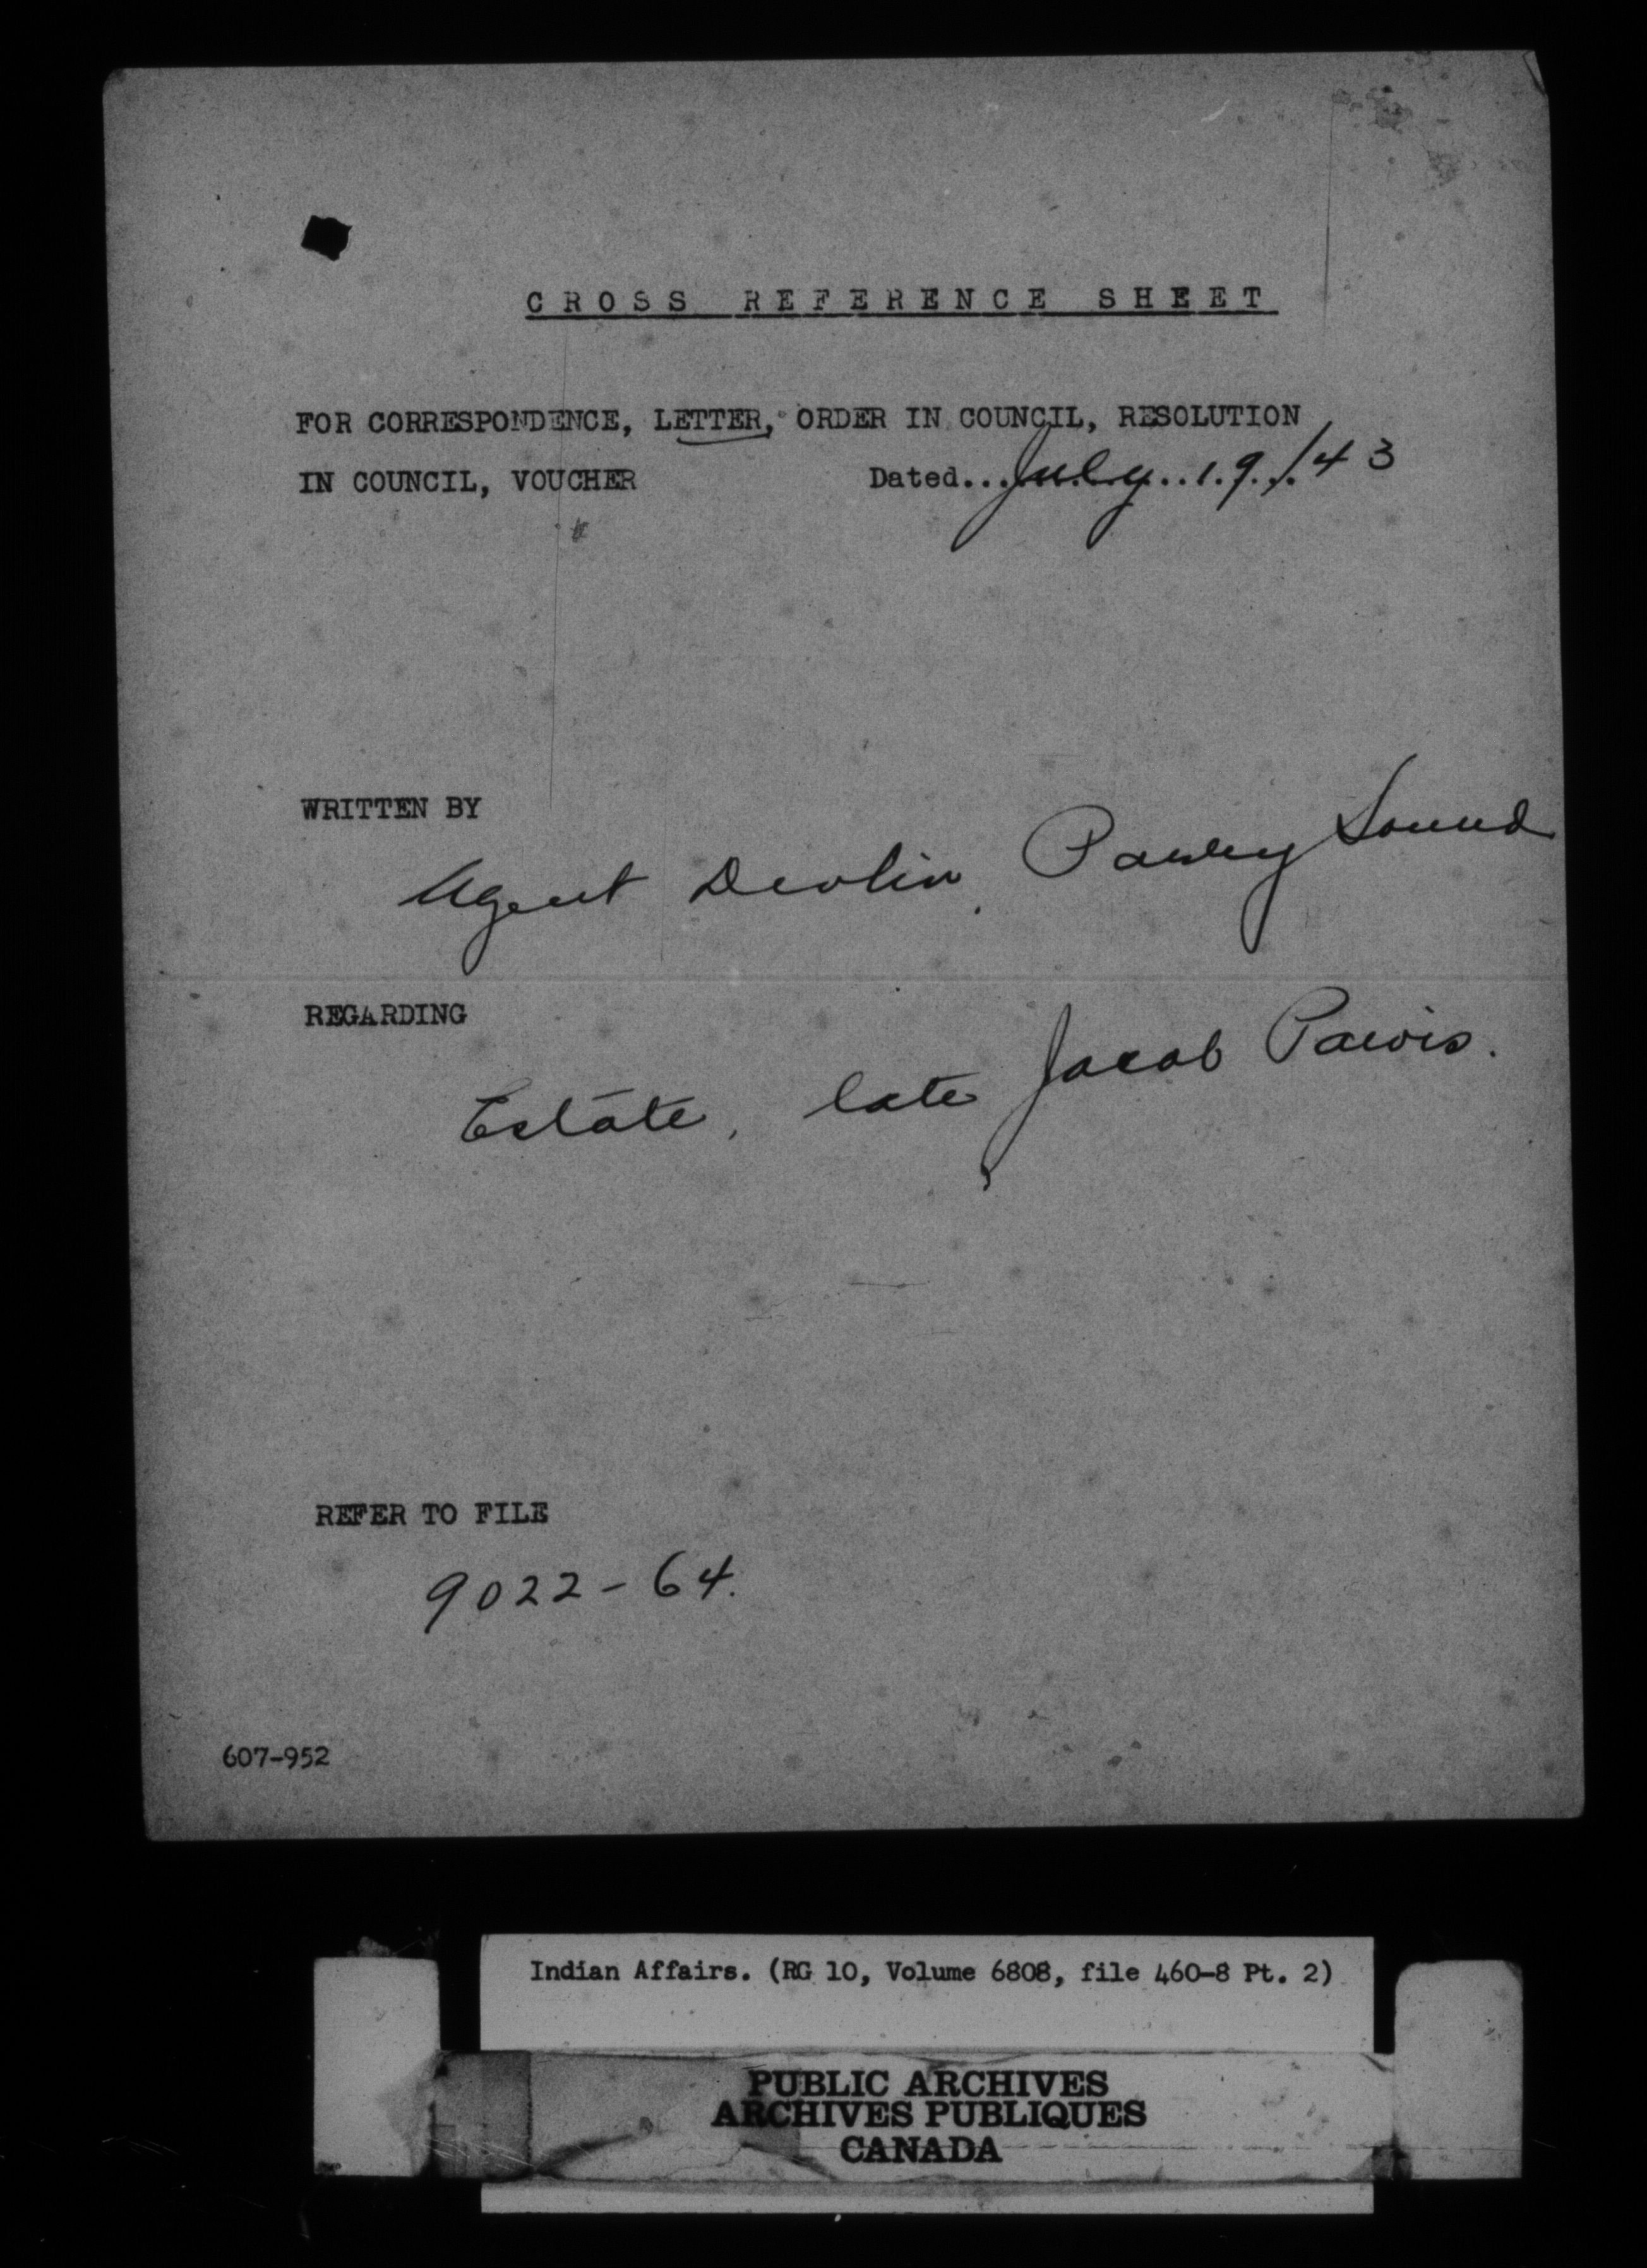 CROSS REFERENCE SHEET
FOR CORRESPONDENCE, LETTER, ORDER IN COUNCIL, RESOLUTION
IN COUNCIL, VOUCHER Dated...July..19./43
WRITTEN BY
Agent Devlin, Parry Sound
REGARDING
Estate, late Jacob Pawis.
REFER TO FILE
9022-64.
607-952
Indian Affairs. (RG 10, Volume 6808, file 460-8 Pt. 2)
PUBLIC ARCHIVES
ARCHIVES PUBLIQUES
CANADA